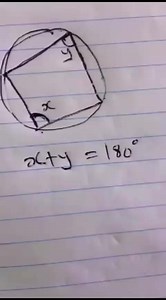 y
x
x+y = 180°